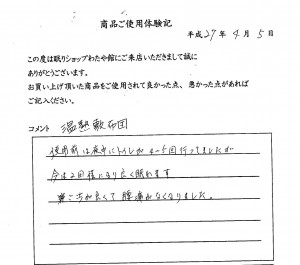 商品ご使用体験記
平成27年4月5日
この度は眠りショップわたや館にご来店いただきまして誠に
ありがとうございます。
お買い上げ頂いた商品をご使用されて良かった点、悪かった点があれば
ご記入ください。
コメント 温熱敷布団
使用前は夜中にトイレが4~5回行ってましたが
今は2回様になり良く眠れます
寝ごこちが良くて腰痛がなくなりました。